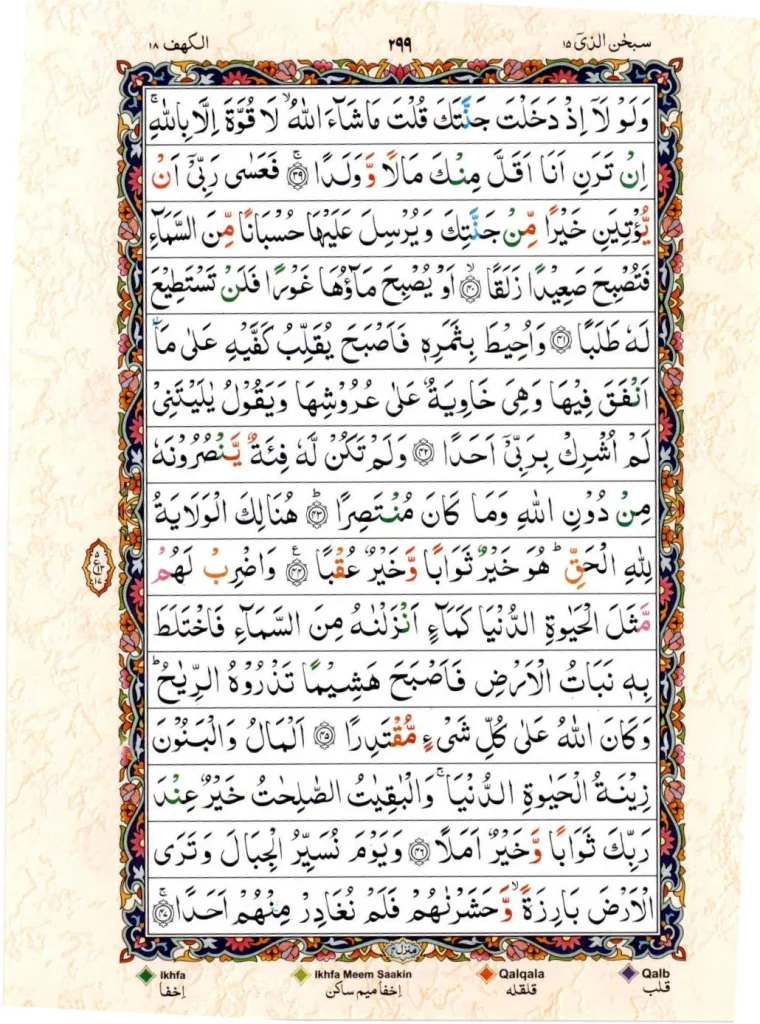 سبحٰن الذیٓ ۱۵
۲۹۹
الکھف ۱۸
وَلَوْ لَاۤ اِذْ دَخَلْتَ جَنَّتَكَ قُلْتَ مَا شَآءَ اللّٰهُ ۙ لَا قُوَّةَ اِلَّا بِاللّٰهِ ۚ
اِنْ تَرَنِ اَنَا اَقَلَّ مِنْكَ مَالًا وَّ وَلَدًا ۚ ﴿۳۹﴾ فَعَسٰى رَبِّىْۤ اَنْ
يُّؤْتِيَنِ خَيْرًا مِّنْ جَنَّتِكَ وَ يُرْسِلَ عَلَيْهَا حُسْبَانًا مِّنَ السَّمَآءِ
فَتُصْبِحَ صَعِيْدًا زَلَقًا ۙ ﴿۴۰﴾ اَوْ يُصْبِحَ مَآؤُهَا غَوْرًا فَلَنْ تَسْتَطِيْعَ
لَهٗ طَلَبًا ﴿۴۱﴾ وَاُحِيْطَ بِثَمَرِهٖ فَاَصْبَحَ يُقَلِّبُ كَفَّيْهِ عَلٰى مَاۤ
اَنْفَقَ فِيْهَا وَهِىَ خَاوِيَةٌ عَلٰى عُرُوْشِهَا وَيَقُوْلُ يٰلَيْتَنِىْ
لَمْ اُشْرِكْ بِرَبِّىْۤ اَحَدًا ﴿۴۲﴾ وَلَمْ تَكُنْ لَّهٗ فِئَةٌ يَّنْصُرُوْنَهٗ
مِنْ دُوْنِ اللّٰهِ وَمَا كَانَ مُنْتَصِرًا ؕ ﴿۴۳﴾ هُنَالِكَ الْوَلَايَةُ
لِلّٰهِ الْحَقِّ ؕ هُوَ خَيْرٌ ثَوَابًا وَّخَيْرٌ عُقْبًا ﴿۴۴﴾ ع وَاضْرِبْ لَهُمْ
مَّثَلَ الْحَيٰوةِ الدُّنْيَا كَمَآءٍ اَنْزَلْنٰهُ مِنَ السَّمَآءِ فَاخْتَلَطَ
بِهٖ نَبَاتُ الْاَرْضِ فَاَصْبَحَ هَشِيْمًا تَذْرُوْهُ الرِّيٰحُ ؕ
وَكَانَ اللّٰهُ عَلٰى كُلِّ شَىْءٍ مُّقْتَدِرًا ﴿۴۵﴾ اَلْمَالُ وَالْبَنُوْنَ
زِيْنَةُ الْحَيٰوةِ الدُّنْيَا ۚ وَالْبٰقِيٰتُ الصّٰلِحٰتُ خَيْرٌ عِنْدَ
رَبِّكَ ثَوَابًا وَّخَيْرٌ اَمَلًا ﴿۴۶﴾ وَيَوْمَ نُسَيِّرُ الْجِبَالَ وَتَرَى
الْاَرْضَ بَارِزَةً ۙ وَّحَشَرْنٰهُمْ فَلَمْ نُغَادِرْ مِنْهُمْ اَحَدًا ۚ ﴿۴۷﴾
۵
ع ۱۳
۱۷
منزل ۴
Ikhfa Ikhfa Meem Saakin Qalqala Qalb
اِخفا اِخفا میم ساکن قلقلہ قلب